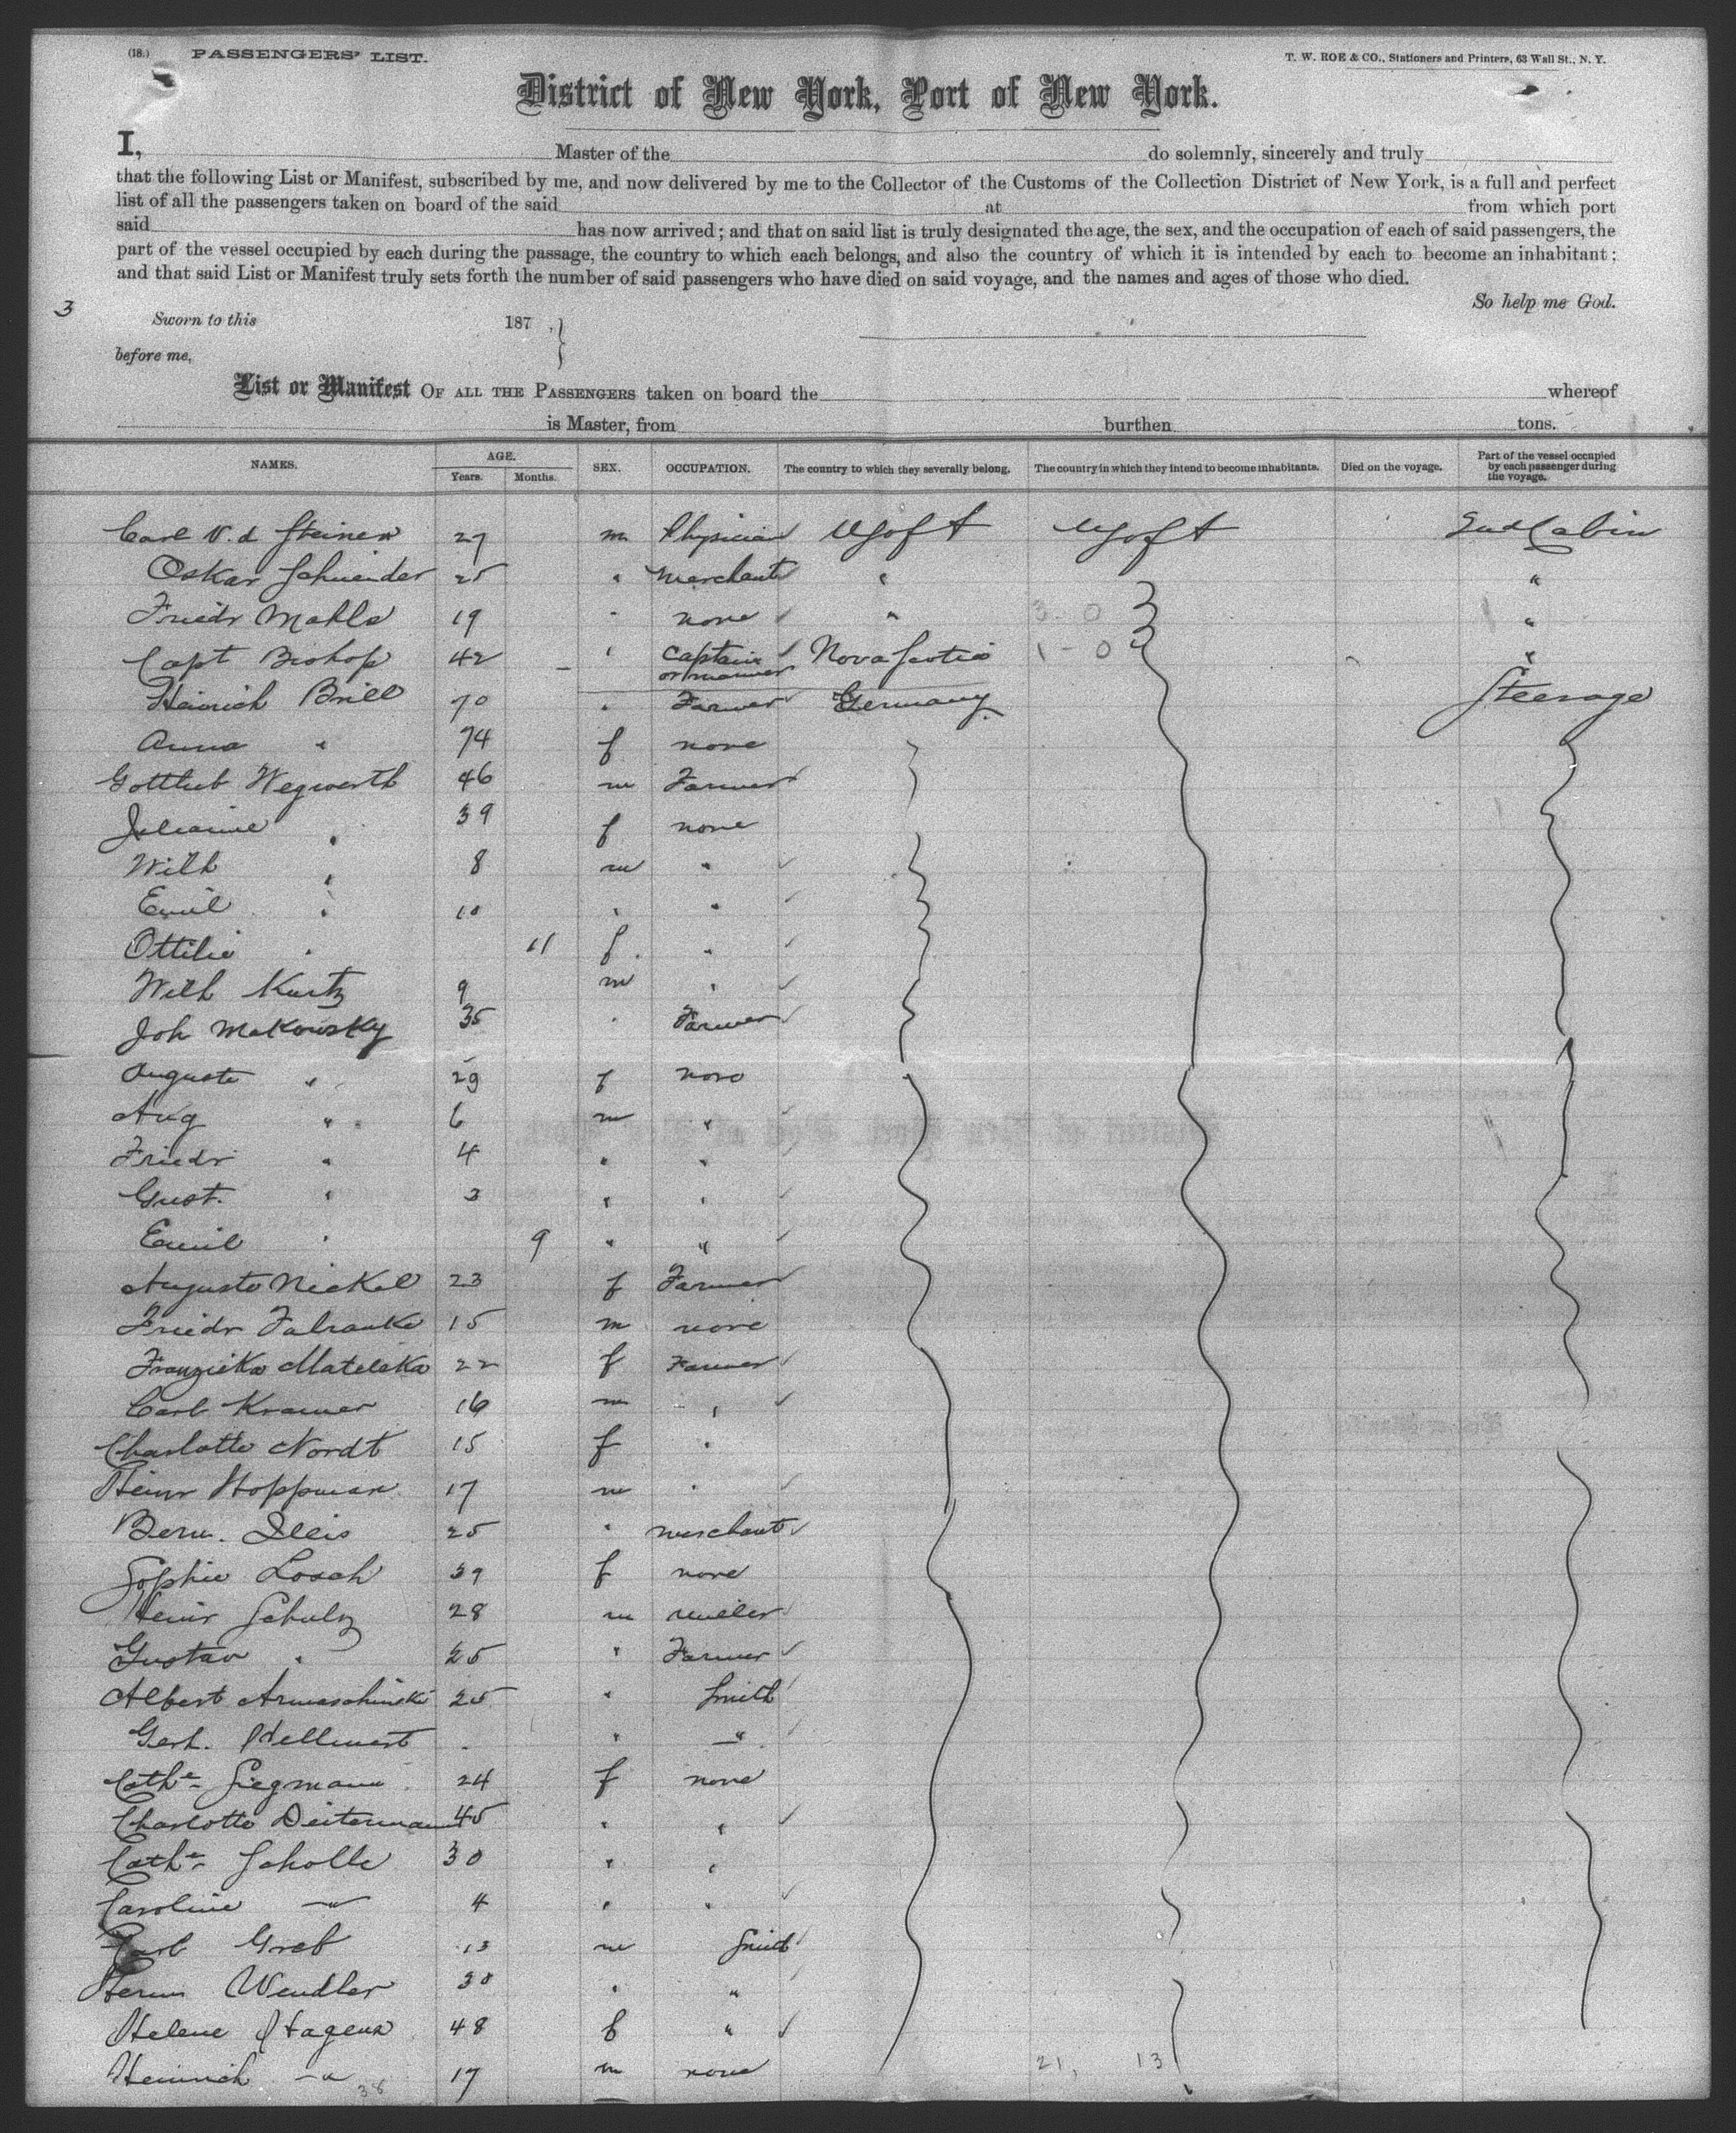 (18.) PASSENGERS' LIST. T. W. ROE & CO., Stationers and Printers, 63 Wall St., N. Y.
District of New York, Port of New York.
I, Master of the do solemnly, sincerely and truly
that the following List or Manifest, subscribed by me, and now delivered by me to the Collector of the Customs of the Collection District of New York, is a full and perfect
list of all the passengers taken on board of the said at from which port
said has now arrived; and that on said list is truly designated the age, the sex, and the occupation of each of said passengers, the
part of the vessel occupied by each during the passage, the country to which each belongs, and also the country of which it is intended by each to become an inhabitant;
and that said List or Manifest truly sets forth the number of said passengers who have died on said voyage, and the names and ages of those who died.
So help me God.
3
Sworn to this 187 .
before me,
List or Manifest OF ALL THE PASSENGERS taken on board the whereof
is Master, from burthen tons.
NAMES. AGE. Years. Months. SEX. OCCUPATION. The country to which they severally belong. The country in which they intend to become inhabitants. Died on the voyage. Part of the vessel occupied by each passenger during the voyage.
Carl V. d Steinen 27 m Physician U S of A U S of A 2nd Cabin
Oskar Schneider 25 " Merchant " "
Friedr Mahls 19 " none " 3 - 0 "
Capt Bishop 42 " Captain or mariner Nova Scotia 1 - 0 "
Heinrich Brill 70 " Farmer Germany Steerage
Anna " 74 f none
Gottlieb Wegwerth 46 m Farmer
Juliane " 39 f none
Wilh " 8 m "
Emil " 10 " "
Ottilie " 11 f "
Wilh Kurtz 9 m "
Joh Makowsky 35 " Farmer
Auguste " 29 f none
Aug " 6 m "
Friedr " 4 " "
Gust. " 3 " "
Emil " 9 " "
Auguste Nickel 23 f Farmer
Friedr 15 m none
Franziska Mateleka 22 f Farmer
Carl Kramer 16 m "
Charlotte Nordt 15 f "
Heinr Hoppman 17 m "
Bern. 25 " merchant
Sophie Losch 39 f none
Heinr Schulz 28 m miller
Gustav " 25 " Farmer
Albert Armaschinski 25 " Smith
Gerh. Hellmert " "
Cathe Siegmann 24 f none
Charlotte Deitermann 45 " "
Cathe Scholle 30 " "
Caroline " 4 " "
Carl Greb 13 m Smith
Herm Wendler 30 " "
Helene Hagens 48 f "
Heinrich " 17 m none 21, 13
38